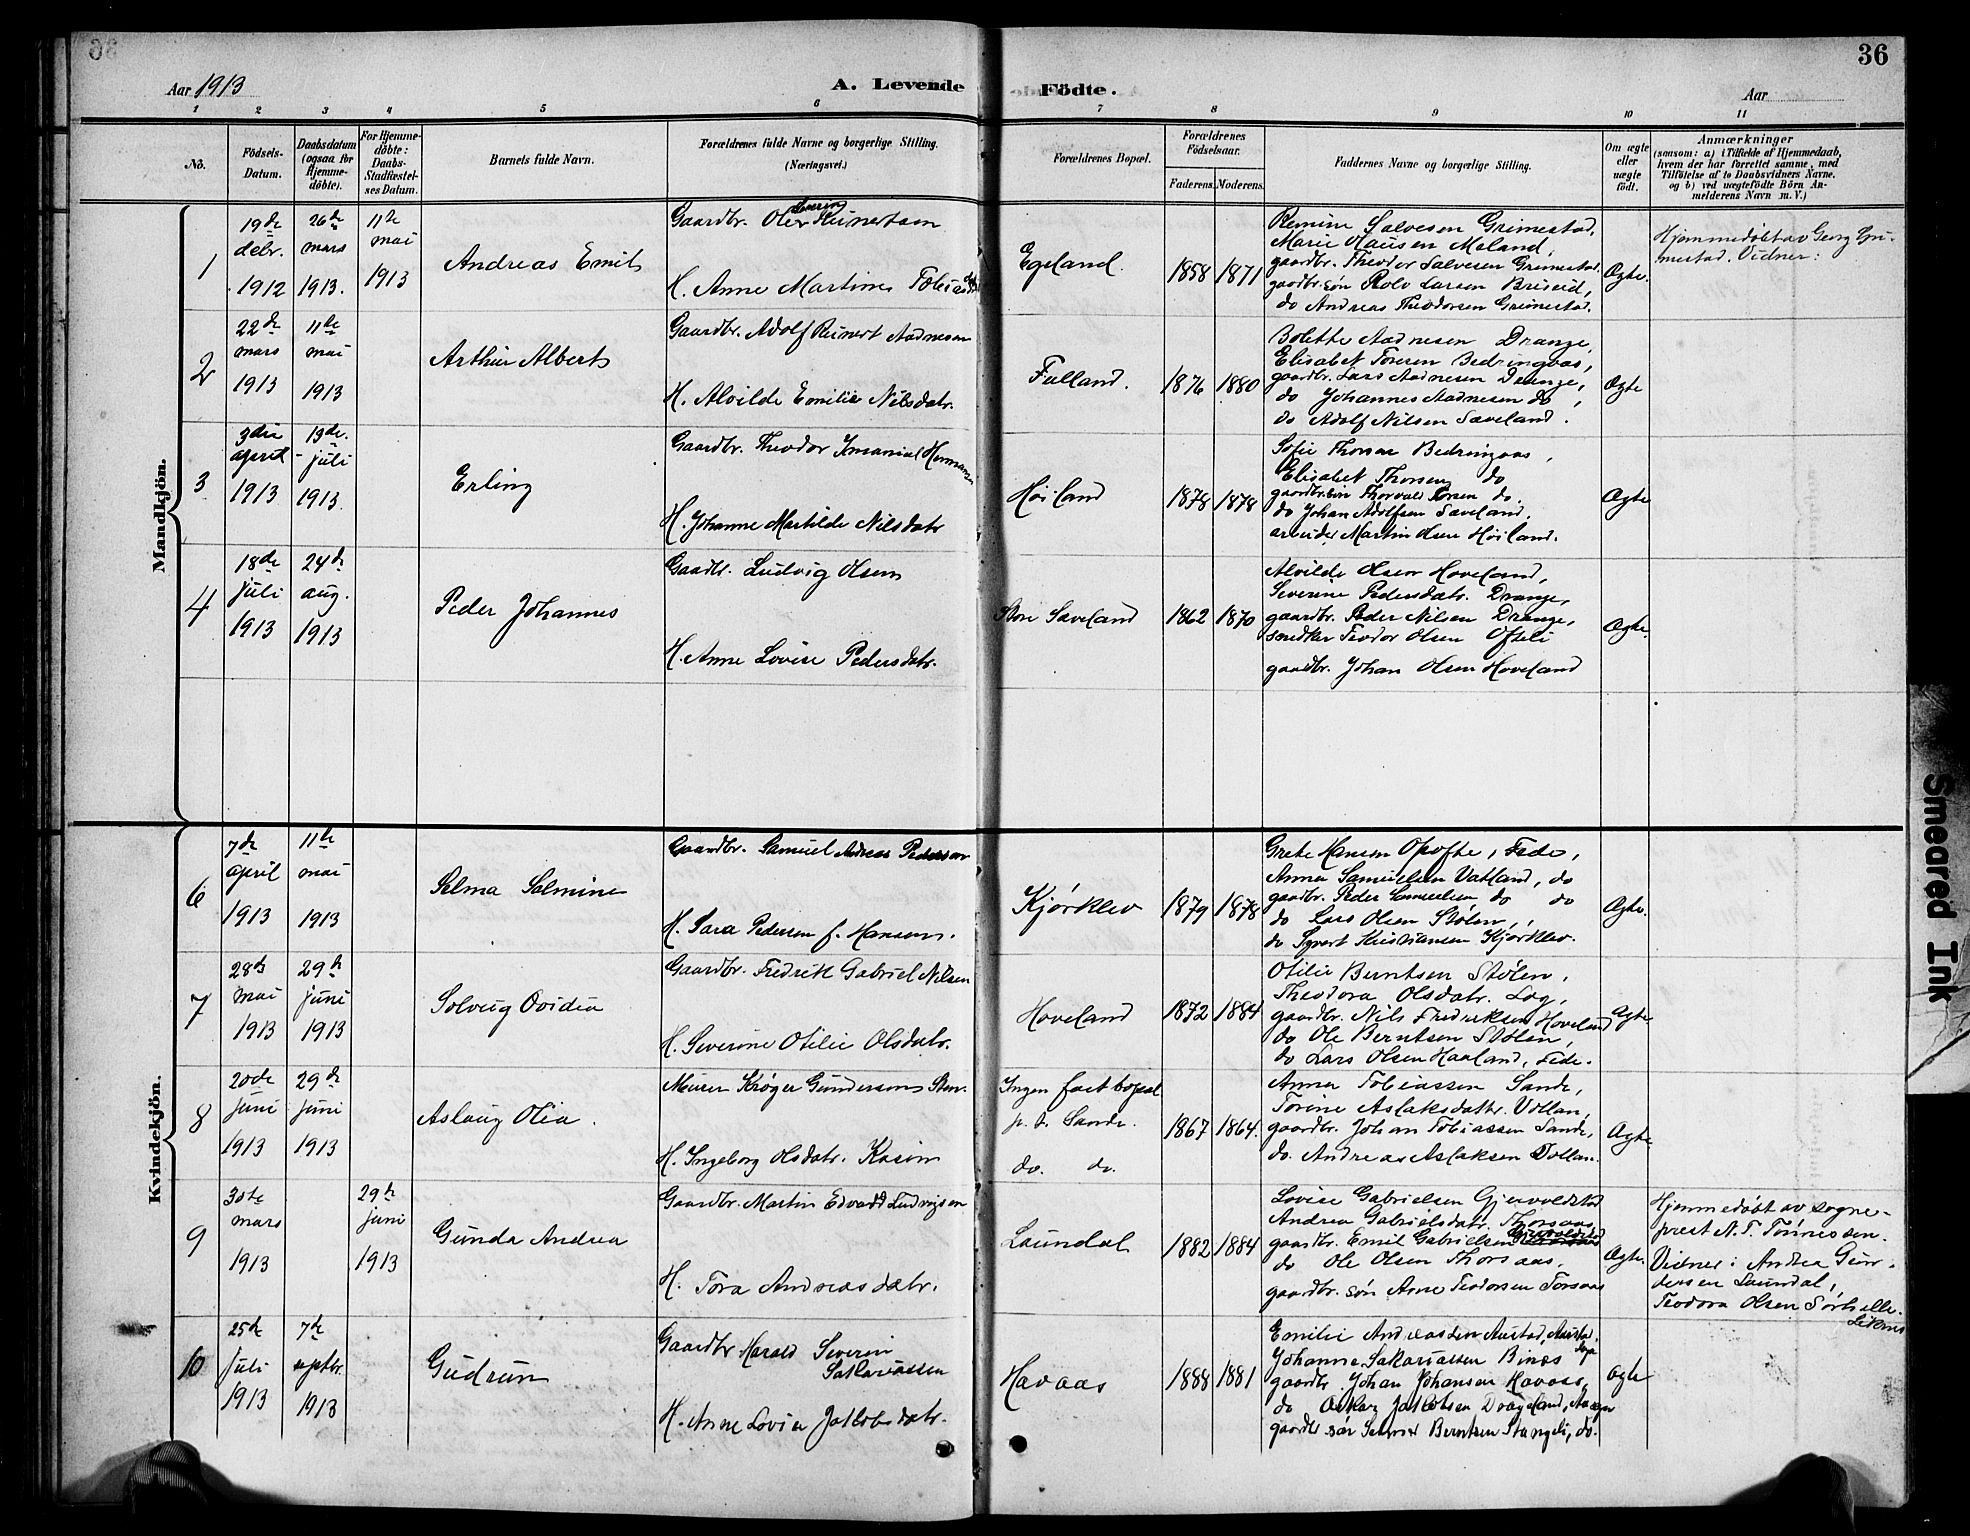 36
Aar 1913
A. Levende Födte.
Aar
1 2 3 4 5 6 7 8 9 10 11
No.
Födsels-Datum.
Daabsdatum (ogsaa for Hjemmedöbte).
For Hjemmedöbte: Daabs-Stadfæstelses Datum.
Barnets fulde Navn.
Forældrenes fulde Navne og borgerlige Stilling.
(Næringsvei.)
Forældrenes Bopæl.
Forældrenes Födselsaar.
Faderens. Moderens.
Faddernes Navne og borgerlige Stilling.
Om ægte eller uægte födt.
Anmærkninger
(saasom: a) i Tilfælde af Hjemmedaab,
hvem der har forrettet samme, med
Tilföielse af to Daabsvidners Navne.
og b) ved uægtefödte Börn An-
melderens Navn m. V.)
Mandkjön.
1
19de debr. 1912
26de mars 1913.
11te mai 1913
Andreas Emil
Gaardbr. Ole Severin
H. Anne Martine
Egeland.
1858 1871
Salvesen Grimestad,
Marie
gaardbr. Theodor Salvesen Grimestad.
gaardbr. søn Rolv Larsen Briseid,
do Andreas Theodorsen Grimestad.
Ægte.
Hjemmedøbt av Georg Gri-
mestad. Vidner:
2
22de mars 1913
11te mai 1913
Arthur Albert
Gaardbr. Adolf Reinert Aadnesen
H. Alvilde Emilie Nilsdatr.
Fuland.
1876 1880
Bolette Aadnesen Drange,
Elisabet Toresen Bedringaas,
gaardbr. Lars Aadnesen Drange,
do Johannes Aadnesen do,
do Adolf Nilsen Sæveland.
Ægte
3
3die april 1913
13de juli 1913.
Erling
Gaardbr. Theodor Imanuel Hermansen
H. Johanne Martilde Nilsdatr
Høiland
1878 1878
Sofie Thorsen Bedringaas,
Elisabet Thorsen do
gaardbr. søn Thorvald Torsen do.
do Johan Adolfsen Sæveland.
arbeider Martin Olsen Høiland.
Ægte
4
18de juli 1913
24de aug. 1913
Peder Johannes
Gaardb. Ludvig Olsen
H. Anne Lovise Pedersdatr.
Store Sæveland
1862 1870
Alvilde Olsen Hoveland,
Severine Pedersdatr. Drange,
gaardbr. Peder Nilsen Drange,
Teodor Olsen Ofteli
gaardbr. Johan Olsen Hoveland
Ægte.
Kvindekjön.
6
7de april 1913
11te mai 1913
Selma Salmine
Gaardbr. Samuel Andreas Pedersen
H. Sara Pedersen f. Hansen.
Kjørklev
1879 1878
Grete Hansen Opofte, Fede,
Anna Samuelsen Vatland, do
gaardbr. Peder Samuelsen do do
do Lars Olsen Stølen,
do Syvert Kristiansen Kjørklev.
Ægte.
7
28de mai 1913
29de juni 1913
Solveig Ovidia
Gaardbr. Fredrik Gabriel Nilsen
H. Severine Otilie Olsdatr.
Hoveland
1872 1884
Otilie Berntsen Stølen,
Theodora Olsdatr. Log,
gaardbr. Nils Fredriksen Hoveland
do Ole Berntsen Stølen,
do Lars Olsen Haaland, Fede.
Ægte
8
20de juni 1913
29de juni 1913
Aslaug Olia.
Murer Krøger Gundersen Sten.
H. Ingeborg Olsdatr. Kasin
Ingen fast bopæl
p. t. Sande.
do. do.
1867 1864.
Anna Tobiassen Sande,
Torine Aslaksdattr. Vollan,
gaardbr. Johan Tobiassen Sande,
do. Andreas Aslaksen Vollan.
Ægte
9
30te mars 1913
29de juni 1913
Gunda Andrea
Gaardbr. Martin Edvard Ludvigsen
H. Tora Andreasdatr.
Laundal
1882 1884
Lovise Gabrielsen Gjervoldstad
Andrea Gabrielsdatr. Thorsaas
gaardbr. Emil Gabrielsen Gjervoldstad
do Ole Olsen Thorsaas,
gaardbr. søn Arne Teodorsen Torsaas
Ægte.
Hjemmedøbt av sogne-
prest N. T. Tønnessen.
Vidner: Andrea Gun-
dersen Laundal,
Teodora Olsen Sørhelle.
10
25de juli 1913
7de septbr. 1913
Gudrun
Gaardbr Harald Severin
Sakariassen
H. Anne Lovise Jakobsdatr.
Havaas
1888 1881
Emilie Andreassen Austad,
Johanne Sakariassen Binæs
gaardbr. Johan Johansen Havaas,
do Jakobsen
gaardbr søn Berntsen Stangeli, do.
Ægte
Smeared Ink